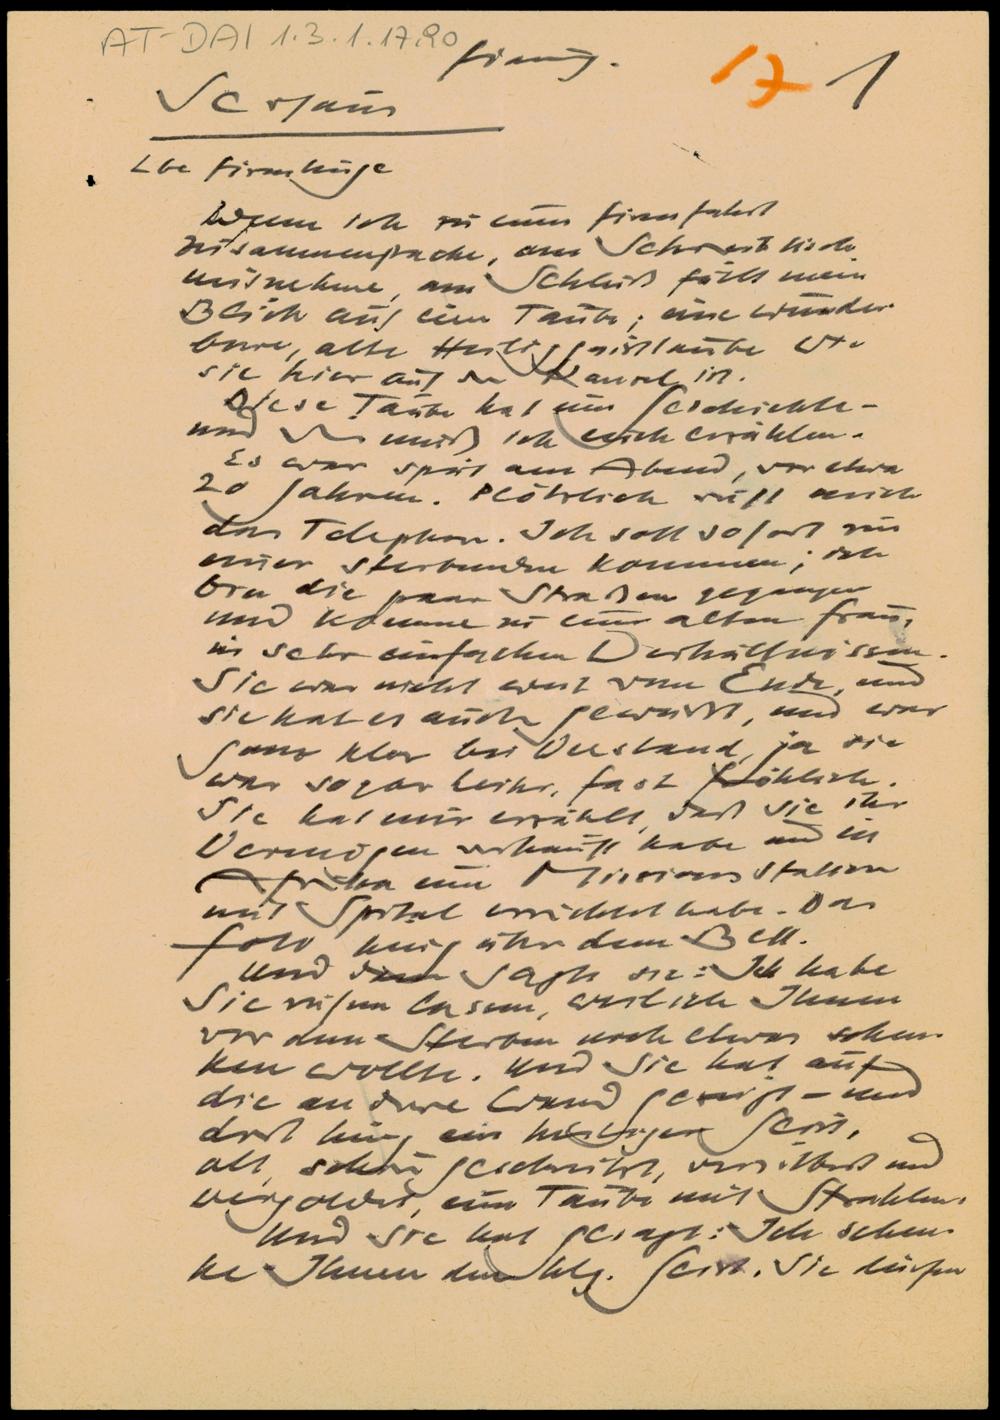 AT-DAI 1.3.1.17.20
Firmung.
17 1
Serfaus
Lbe Firmlinge
Wenn ich zu einer Firmfahrt
zusammenpacke, am Schreibtisch
mitnehme, am Schluß fällt mein
Blick auf eine Taube; eine wunder-
bare, alte Heiliggeisttaube wie
sie hier auf der Kanzel ist.
Diese Taube hat eine Geschichte -
und die muß ich euch erzählen.
Es war spät am Abend, vor etwa
20 Jahren. Plötzlich ruft mich
das Telephon. Ich soll sofort zu
einer Sterbenden kommen; ich
bin die paar Straßen gegangen
und komme zu einer alten Frau,
in sehr einfachen Verhältnissen.
Sie war nicht weit vom Ende, und
sie hat es auch gewusst, und war
ganz klar bei Verstand, ja sie
war sogar heiter, fast fröhlich.
Sie hat mir erzählt, daß sie ihr
Vermögen verkauft habe und in
Afrika eine Missionsstation
mit Spital errichtet habe. Das
Foto hing über dem Bett.
Und dann sagte sie: Ich habe
Sie rufen lassen, weil ich Ihnen
vor dem Sterben noch etwas schen-
ken wollte. Und sie hat auf
die andere Wand gezeigt - und
dort hing ein heiliger Geist,
alt, schön geschnitzt, versilbert und
vergoldet, eine Taube mit Strahlen.
Und sie hat gesagt: Ich schen-
ke Ihnen den hlg. Geist. Sie dürfen